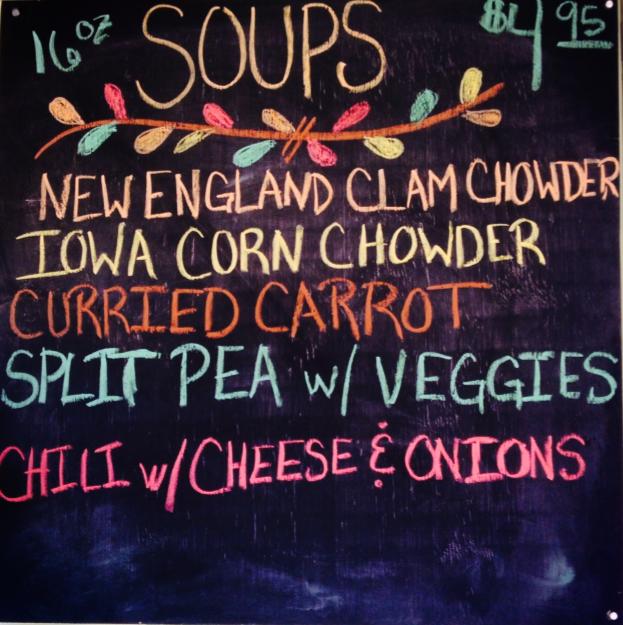 16 OZ SOUPS $4.95
NEW ENGLAND CLAM CHOWDER
IOWA CORN CHOWDER
CURRIED CARROT
SPLIT PEA w/ VEGGIES
CHILI w/ CHEESE & ONIONS